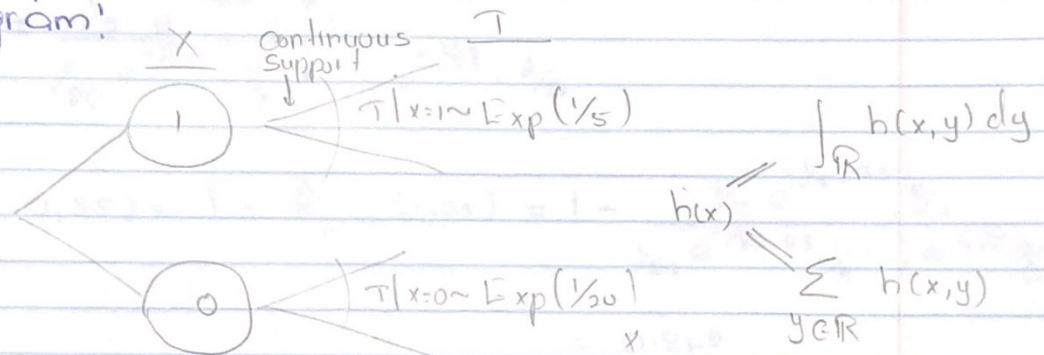 gram!
X continuous T
support
1 T|x=1~ Exp(1/5) ∫ℝ h(x,y) dy
h(x)
0 T|x=0~ Exp(1/20) ∑ h(x,y)
x y∈ℝ